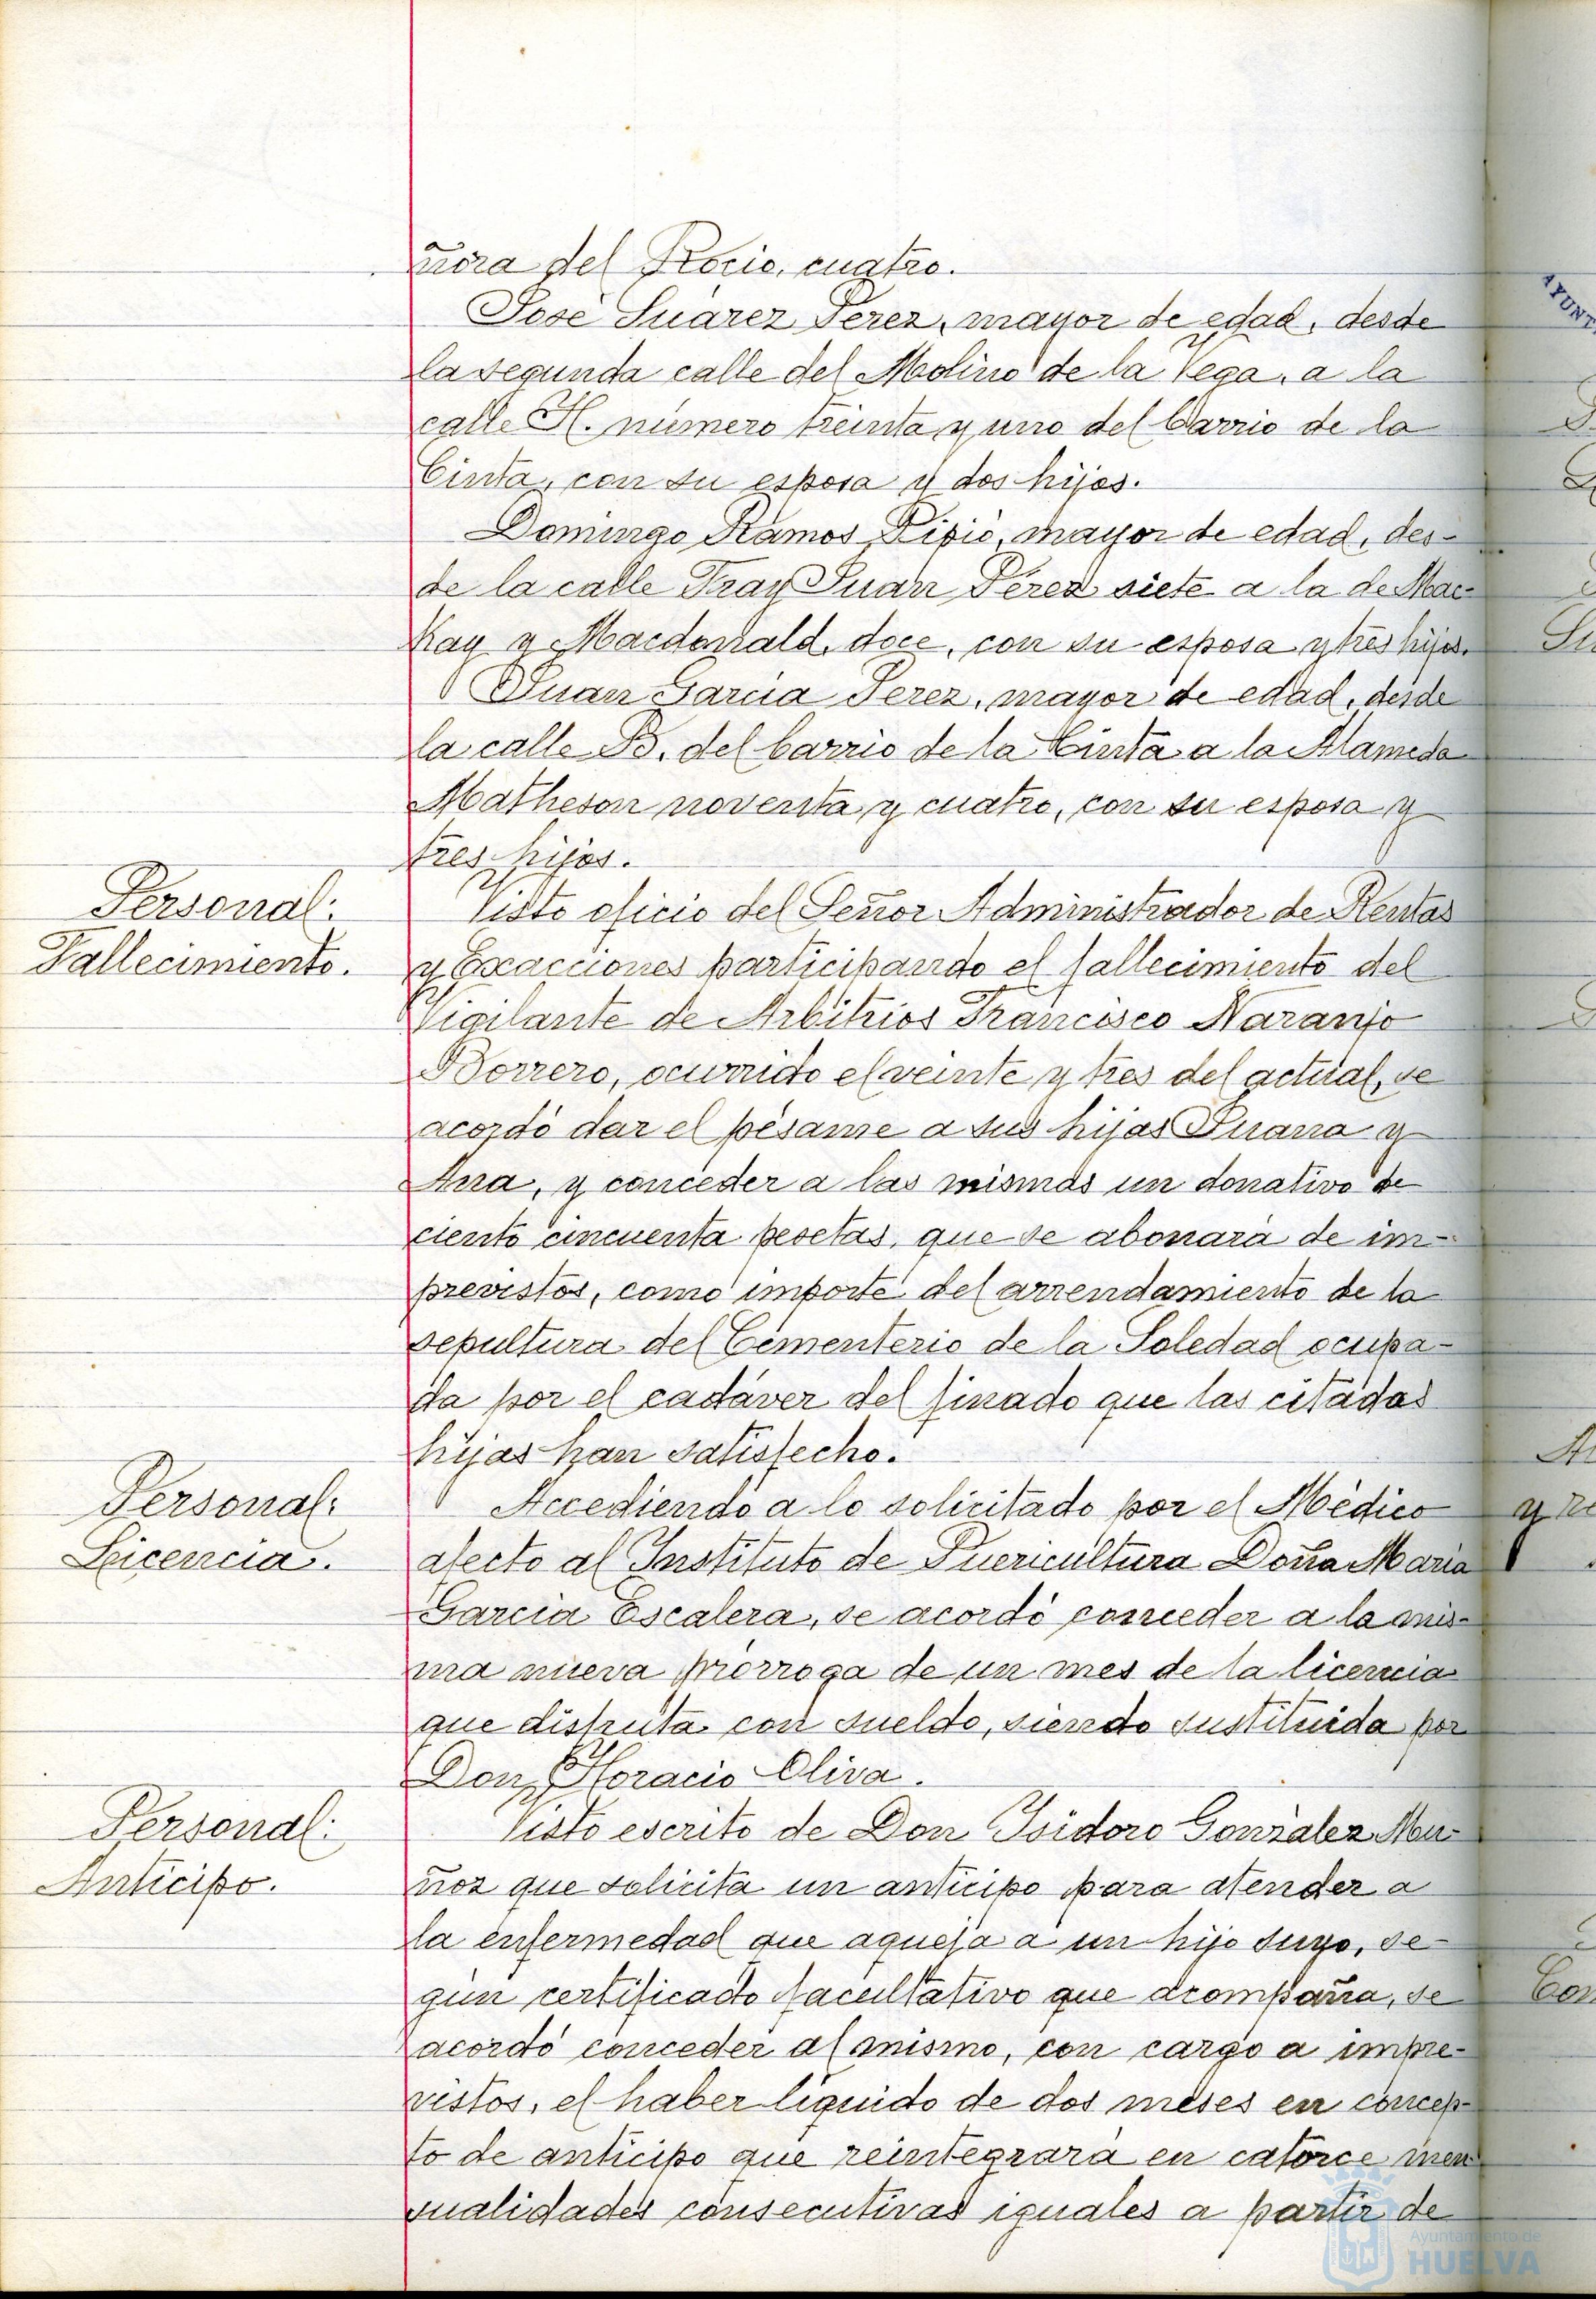 ñora del Rocio, cuatro.
José Suárez Perez, mayor de edad, desde
la segunda calle del Molino de la Vega, a la
calle H. número treinta y uno del barrio de la
Cinta, con su esposa y dos hijos.
Domingo Ramos mayor de edad, des-
de la calle Fray Juan Pérez siete a la de Mac-
Kay y Macdonald, doce, con su esposa y tres hijos.
Juan Garcia Perez, mayor de edad, desde
la calle B. del barrio de la Cinta a la Alameda
Matheson noventa y cuatro, con su esposa y
tres hijos.
Personal:
Fallecimiento.
Visto oficio del Señor Administrador de Rentas
y Exacciones participando el fallecimiento del
Vigilante de Arbitrios Francisco Naranjo
Borrero, ocurrido el veinte y tres del actual, se
acordó dar el pésame a sus hijas Juana y
Ana, y conceder a las mismas un donativo de
ciento cincuenta pesetas, que se abonará de im-
previstos, como importe del arrendamiento de la
sepultura del Cementerio de la Soledad ocupa-
da por el cadáver del finado que las citadas
hijas han satisfecho.
Personal:
Licencia.
Accediendo a lo solicitado por el Médico
afecto al Instituto de Puericultura Doña Maria
Garcia Escalera, se acordó conceder a la mis-
ma nueva prórroga de un mes de la licencia
que disfruta con sueldo, siendo sustituida por
Don Horacio Oliva.
Personal:
Anticipo.
Visto escrito de Don Isidoro González Mu-
ñoz que solicita un anticipo para atender a
la enfermedad que aqueja a un hijo suyo, se-
gún certificado facultativo que acompaña, se
acordó conceder al mismo, con cargo a impre-
vistos, el haber líquido de dos meses en concep-
to de anticipo que reintegrará en catorce men
sualidades consecutivas iguales a partir de
Ayuntamiento de
HUELVA